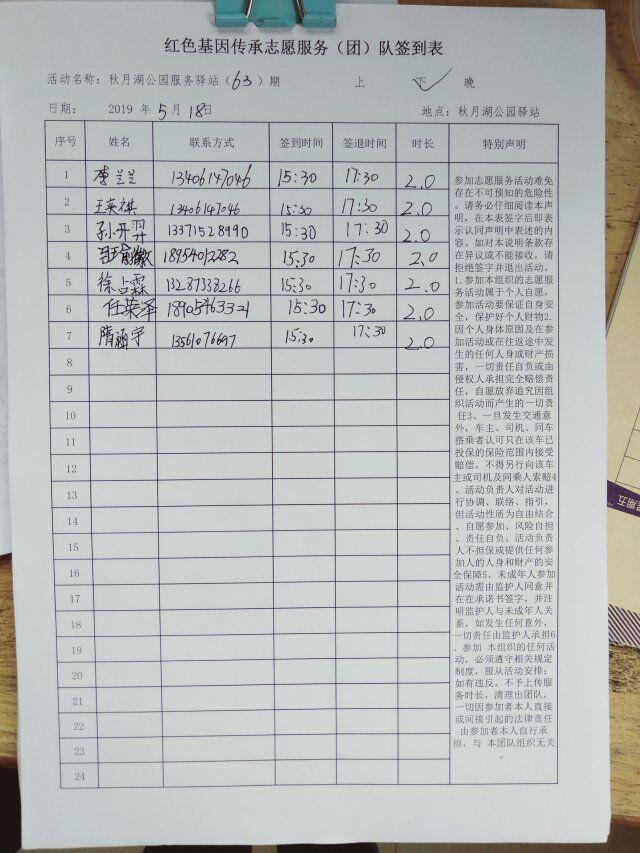 红色基因传承志愿服务（团）队签到表
活动名称：秋月湖公园服务驿站（63）期 上 下 晚
日期： 2019 年 5 月 18日 地点：秋月湖公园驿站
序号 姓名 联系方式 签到时间 签退时间 时长 特别声明
1 李兰兰 13406147046 15:30 17:30 2.0
2 王英祺 13406147046 15:30 17:30 2.0
3 孙开羿 13371528990 15:30 17:30 2.0
4 18954012282 15:30 17:30 2.0
5 徐占霖 13287338266 15:30 17:30 2.0
6 任荣泽 15:30 17:30 2.0
7 隋涵宇 13561076697 15:30 17:30 2.0
8
9
10
11
12
13
14
15
16
17
18
19
20
21
22
23
24
参加志愿服务活动难免
存在不可预知的危险性
。请务必仔细阅读本声
明，在本表签字后即表
示认同声明中表述的内
容。如对本说明条款存
在异议或不能接收，请
拒绝签字并退出活动。
1.参加本组织的志愿服
务活动属于个人自愿。
参加活动要保证自身安
全，保护好个人财物2.
因个人身体原因及在参
加活动或在往返途中发
生的任何人身或财产损
害，一切责任自负或由
侵权人承担完全赔偿责
任，自愿放弃追究因组
织活动而产生的一切责
任3、一旦发生交通意
外，车主、司机、同车
搭乘者认可只在该车已
投保的保险范围内接受
赔偿，不得另行向该车
主或司机及同乘人索赔4
、活动负责人对活动进
行协调、联络、指引，
但活动性质为自由结合
、自愿参加、风险自担
、责任自负。活动负责
人不担保或提供任何参
加人的人身和财产的安
全保障5、未成年人参加
活动需由监护人同意并
在在承诺书签字，并注
明监护人与未成年人关
系，如发生任何意外，
一切责任由监护人承担6
、参加 本组织的任何活
动，必须遵守相关规定
制度，服从活动安排；
如有违反，不予上传服
务时长，清理出团队，
一切因参加者本人直接
或间接引起的法律责任
由参加者本人自行承
担，与 本团队组织无关
。
星期五